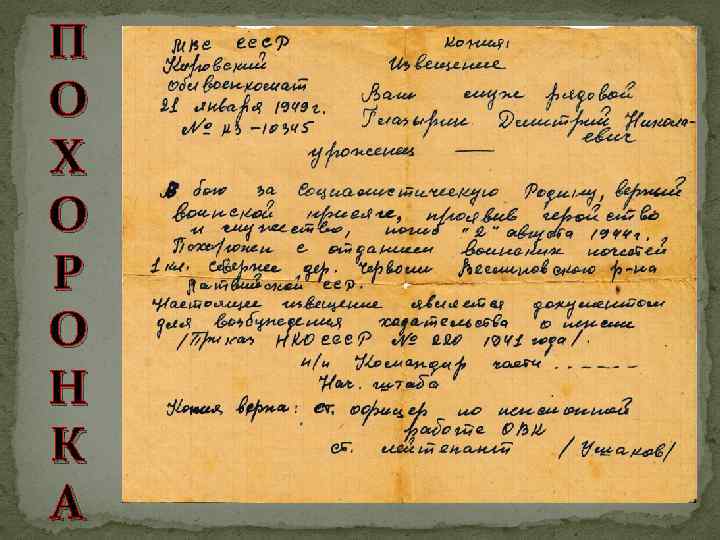 ПОХОРОНКА
МВС СССР Копия:
Кировский Извещение
Облвоенкомат
21 января 1949 г. Ваш муж рядовой
№ нз-10345 Глазырин Дмитрий Никола-
евич
уроженец —
В бою за Социалистическую Родину, верный
воинской присяге, проявив геройство
и мужество, погиб "2" августа 1944 г.
Похоронен с отданием воинских почестей
1 кл. севернее дер. Червони
Латвийской ССР.
Настоящее извещение является документом
для возбуждения ходатайства о пенсии
/Приказ НКО СССР № 220 1941 года/.
п/п Командир части ......
Нач. штаба
Копия верна: ст. офицер по пенсионной
работе ОВК
ст. лейтенант /Ушаков/